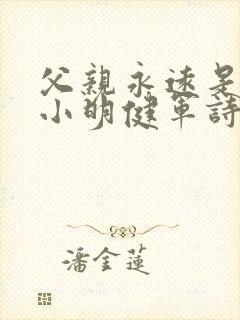 父親永遠是
小明健軍詩
潘金蓮